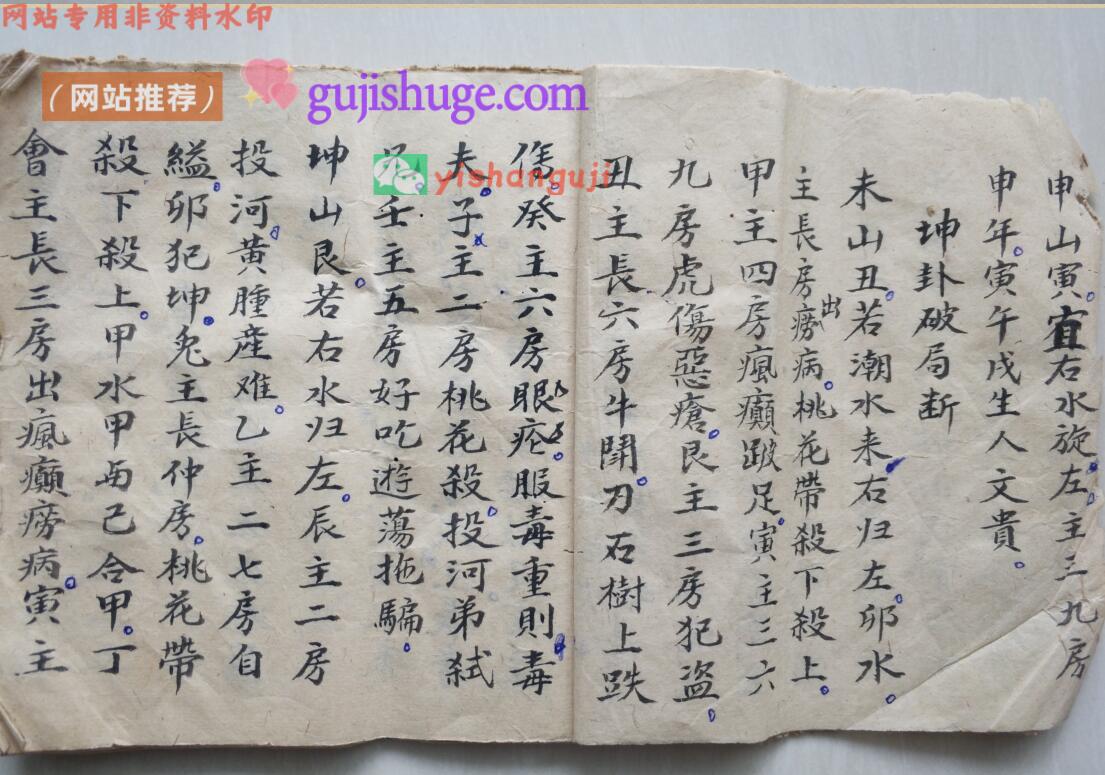 网站专用非资料水印
（网站推荐）
gujishuge.com
yishanguji
申山寅。宜右水旋左。主三九房
申年。寅午戌生人文貴。
坤卦破局断
未山丑。若潮水来右归左。卯水。
主長房出痨病。桃花帶殺下殺上。
甲主四房瘋癲跛足。寅主三六
九房虎傷惡瘡。艮主三房犯盗。
丑主長六房牛鬪。刀石樹上跌
傷。癸主六房眼疒。服毒重則毒
夫。子主二房桃花殺。投河弟弑
兄。壬主五房好吃遊蕩拖騙。
坤山艮。若右水归左。辰主二房
投河。黄腫產难。乙主二七房自
縊。卯犯坤。兎主長仲房。桃花帶
殺下殺上。甲水甲与己合甲。丁
會主長三房出瘋癲痨病。寅主